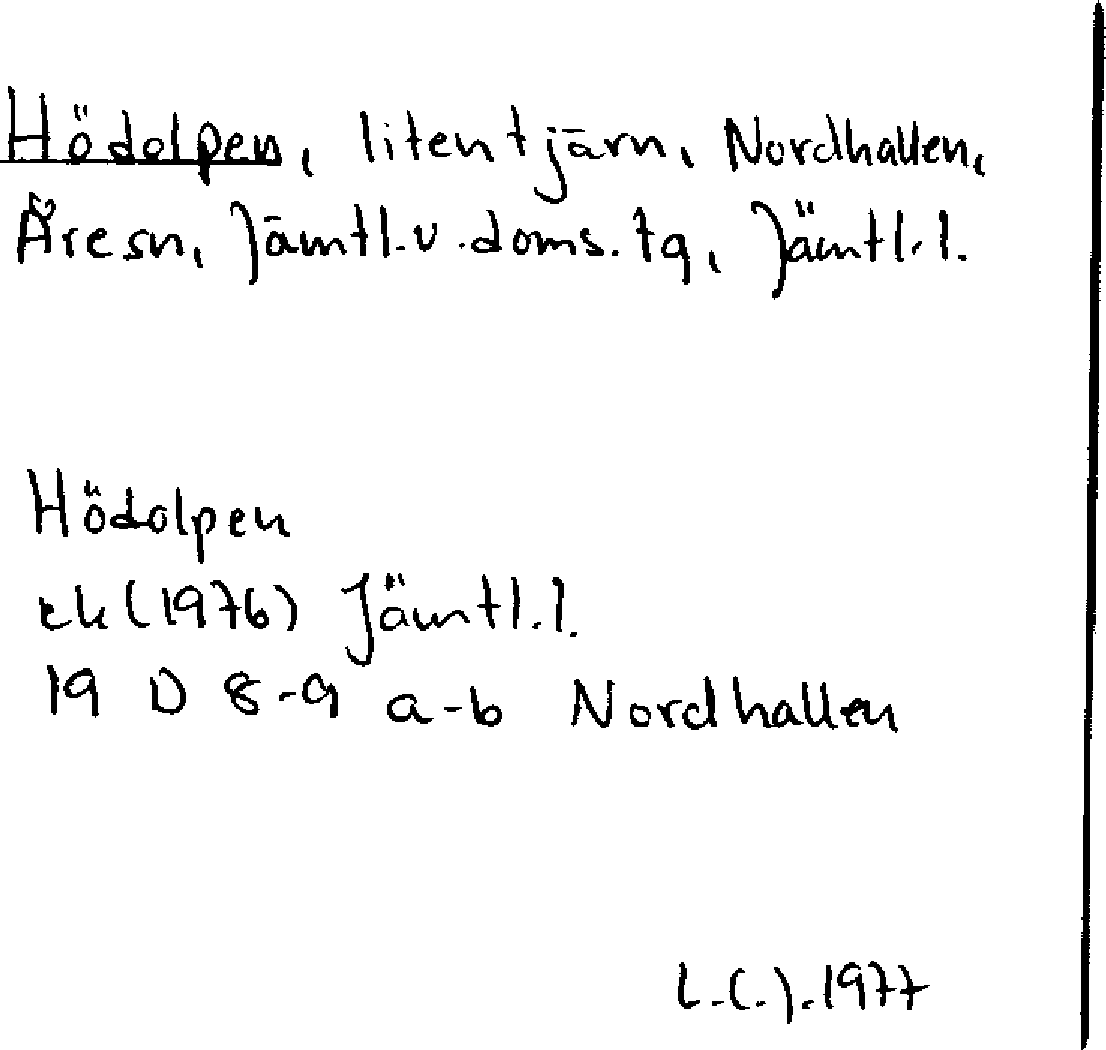 Hödolpen, liten tjärn, Nordhallen,
Åre sn, Jämtl.v.doms.tg, Jämtl.l.
Hödolpen
ek (1976) Jämtl.l.
19 D 8-9 a-b Nordhallen
L.C.J.1977